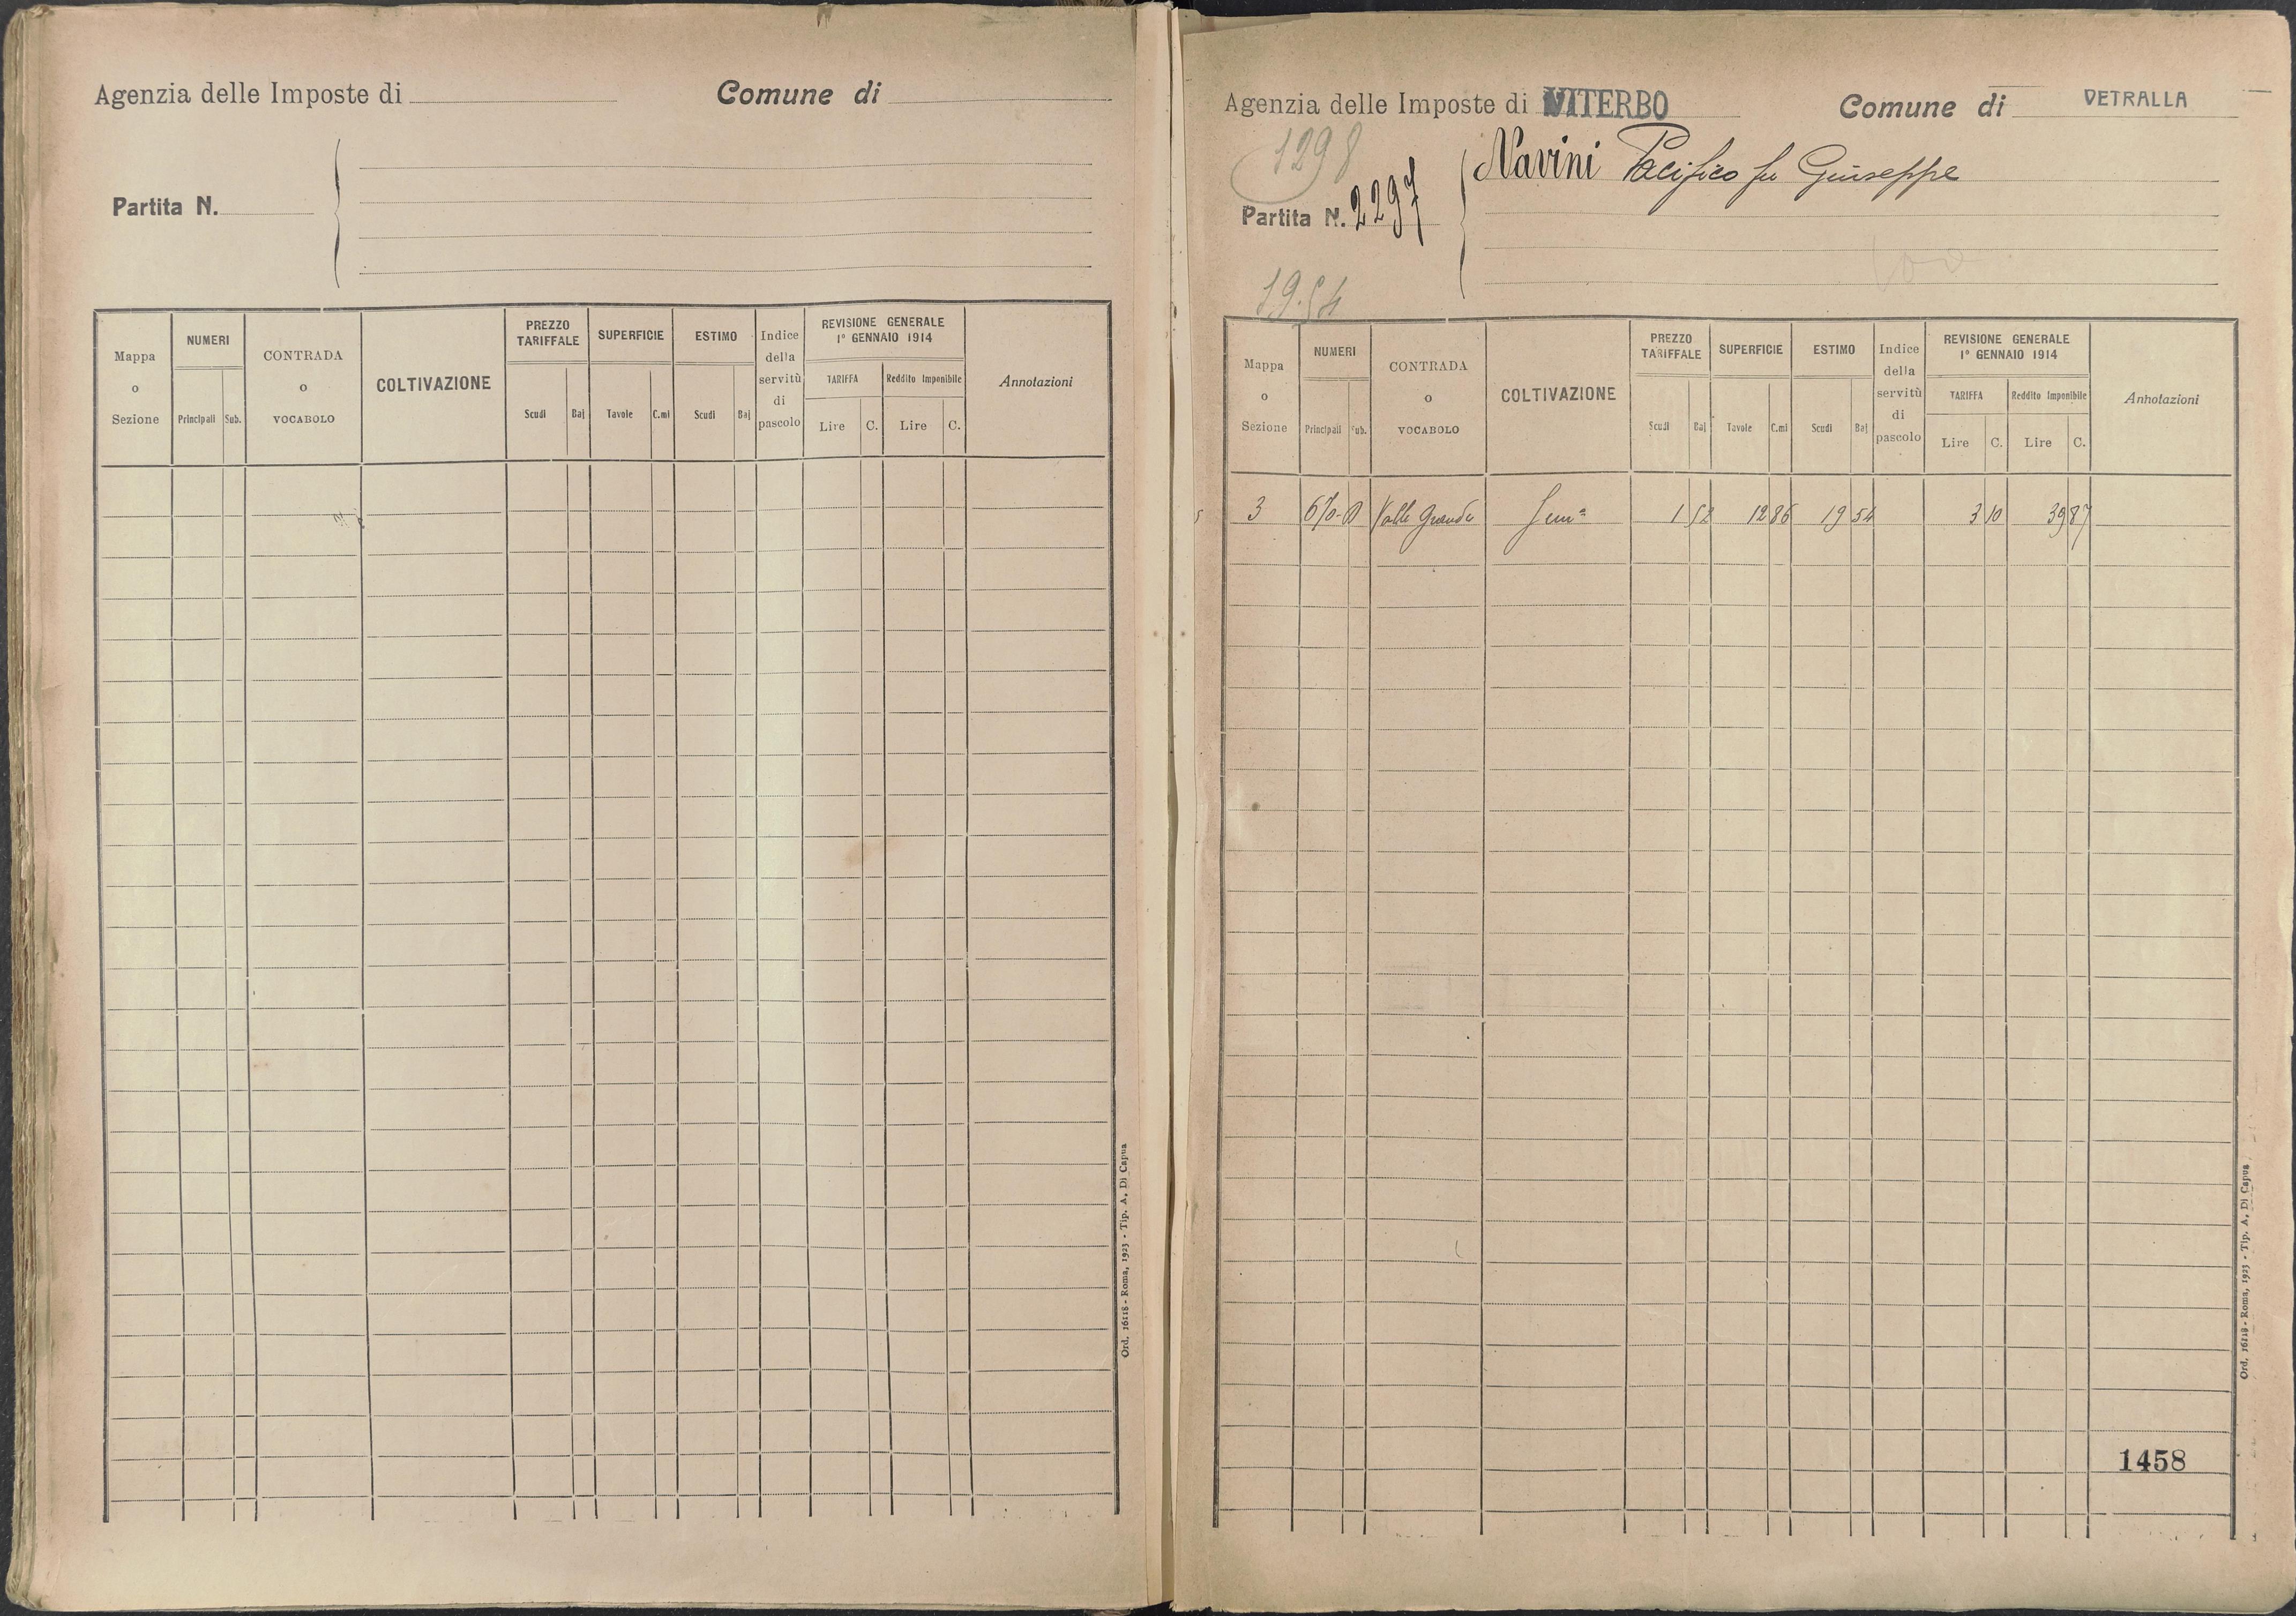 Agenzia delle Imposte di
Comune di
Partita N.
Mappa o Sezione
NUMERI
Principali Sub.
CONTRADA o VOCABOLO
COLTIVAZIONE
PREZZO TARIFFALE
Scudi Baj
SUPERFICIE
Tavole C.mi
ESTIMO
Scudi Baj
Indice della servitù di pascolo
REVISIONE GENERALE
1° GENNAIO 1914
TARIFFA
Lire C.
Reddito Imponibile
Lire C.
Annotazioni
Ord. 16118 - Roma, 1923 - Tip. A. Di Capua
Agenzia delle Imposte di VITERBO
Comune di VETRALLA
1298
Partita N. 2297
Navini Pacifico fu Giuseppe
19.54
Mappa o Sezione
NUMERI
Principali Sub.
CONTRADA o VOCABOLO
COLTIVAZIONE
PREZZO TARIFFALE
Scudi Baj
SUPERFICIE
Tavole C.mi
ESTIMO
Scudi Baj
Indice della servitù di pascolo
REVISIONE GENERALE
1° GENNAIO 1914
TARIFFA
Lire C.
Reddito Imponibile
Lire C.
Annotazioni
3 Valle Grande Semᵒ 1 52 12 86 19 54 3 10 39 87
1458
Ord. 16118 - Roma, 1923 - Tip. A. Di Capua